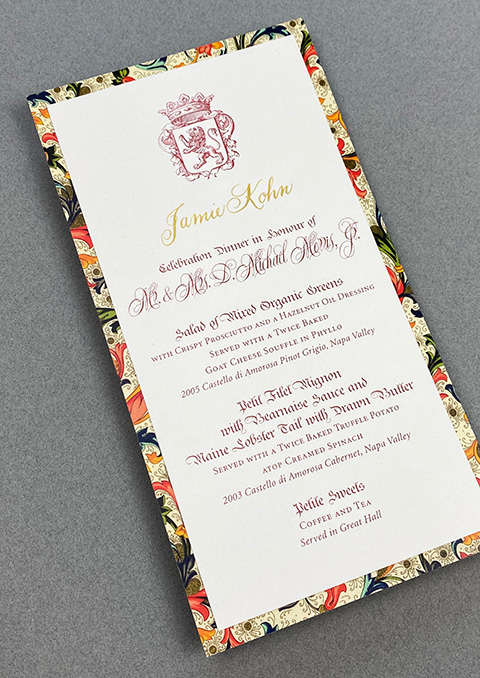 Jamie Kohn
Celebration Dinner in Honour of
Mr. & Mrs. D. Michael Meros, Jr.
Salad of Mixed Organic Greens
with Crispy Prosciutto and a Hazelnut Oil Dressing
Served with a Twice Baked
Goat Cheese Souffle in Phyllo
2005 Castello di Amorosa Pinot Grigio, Napa Valley
Petit Filet Mignon
with Bearnaise Sauce and
Maine Lobster Tail with Drawn Butter
Served with a Twice Baked Truffle Potato
atop Creamed Spinach
2003 Castello di Amorosa Cabernet, Napa Valley
Petite Sweets
Coffee and Tea
Served in Great Hall